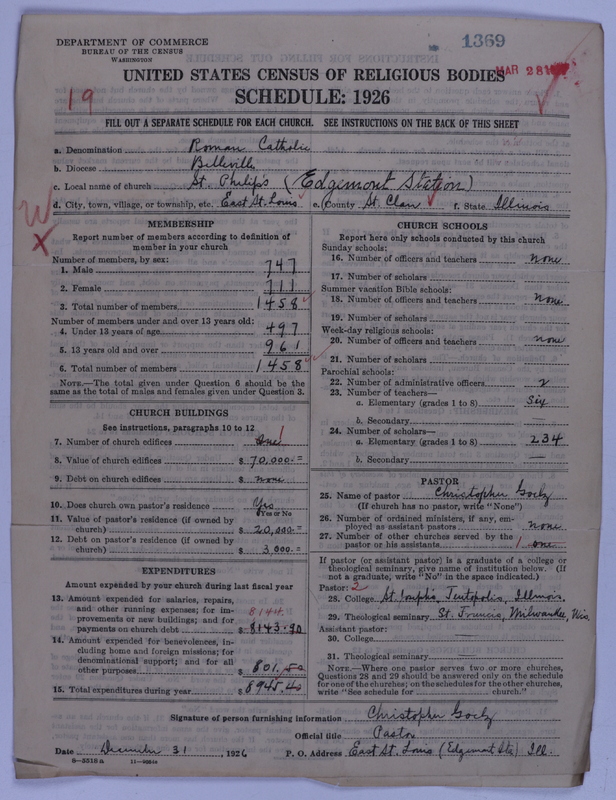 DEPARTMENT OF COMMERCE
BUREAU OF THE CENSUS
WASHINGTON
1369
MAR 28
UNITED STATES CENSUS OF RELIGIOUS BODIES
SCHEDULE: 1926
19
FILL OUT A SEPARATE SCHEDULE FOR EACH CHURCH. SEE INSTRUCTIONS ON THE BACK OF THIS SHEET
a. Denomination Roman Catholic
b. Diocese Belleville
c. Local name of church St. Philip's (Edgemont Station)
d. City, town, village, or township, etc. East St. Louis e. (County St. Clair f. State Illinois
MEMBERSHIP
Report number of members according to definition of
member in your church
Number of members, by sex:
1. Male 747
2. Female 711
3. Total number of members 1458
Number of members under and over 13 years old:
4. Under 13 years of age 497
5. 13 years old and over 961
6. Total number of members 1458
NOTE.—The total given under Question 6 should be
same as the total of males and females given under Question 3.
CHURCH BUILDINGS
See instructions, paragraphs 10 to 12
7. Number of church edifices One 1
8. Value of church edifices $ 70,000.=
9. Debt on church edifices $ none
10. Does church own pastor's residence Yes
Yes or No
11. Value of pastor's residence (if owned by
church) $ 20,000.=
12. Debt on pastor's residence (if owned by
church) $ 3,000.=
EXPENDITURES
Amount expended by your church during last fiscal year
13. Amount expended for salaries, repairs,
and other running expenses; for im-
provements or new buildings; and for 8144.
payments on church debt $ 8143.90
14. Amount expended for benevolences, in-
cluding home and foreign missions; for
denominational support; and for all
other purposes $ 801.50
15. Total expenditures during year $ 8945.40
CHURCH SCHOOLS
Report here only schools conducted by this church
Sunday schools:
16. Number of officers and teachers none
17. Number of scholars
Summer vacation Bible schools:
18. Number of officers and teachers none
19. Number of scholars
Week-day religious schools:
20. Number of officers and teachers none
21. Number of scholars
Parochial schools:
22. Number of administrative officers 2
23. Number of teachers—
a. Elementary (grades 1 to 8) Six
b. Secondary
24. Number of scholars—
a. Elementary (grades 1 to 8) 234
b. Secondary —
PASTOR
25. Name of pastor Christopher Goelz
(If church has no pastor, write "None")
26. Number of ordained ministers, if any, em-
ployed as assistant pastors none
27. Number of other churches served by the
pastor or his assistants 1 one
If pastor (or assistant pastor) is a graduate of a college or
theological seminary, give name of institution below. (If
not a graduate, write "No" in the space indicated.)
Pastor: 2
28. College St. Josephs, Teutopolis, Illinois.
29. Theological seminary St. Francis, Milwaukee, Wis.
Assistant pastor:
30. College
31. Theological seminary
NOTE.—Where one pastor serves two or more churches,
Questions 28 and 29 should be answered only on the schedule
for one of the churches; on the schedules for the other churches,
write "See schedule for church."
Signature of person furnishing information Christopher Goelz
Official title Pastor
Date December 31, 1926 P. O. Address East St. Louis (Edgemont Sta) Ill.
8—5518 a